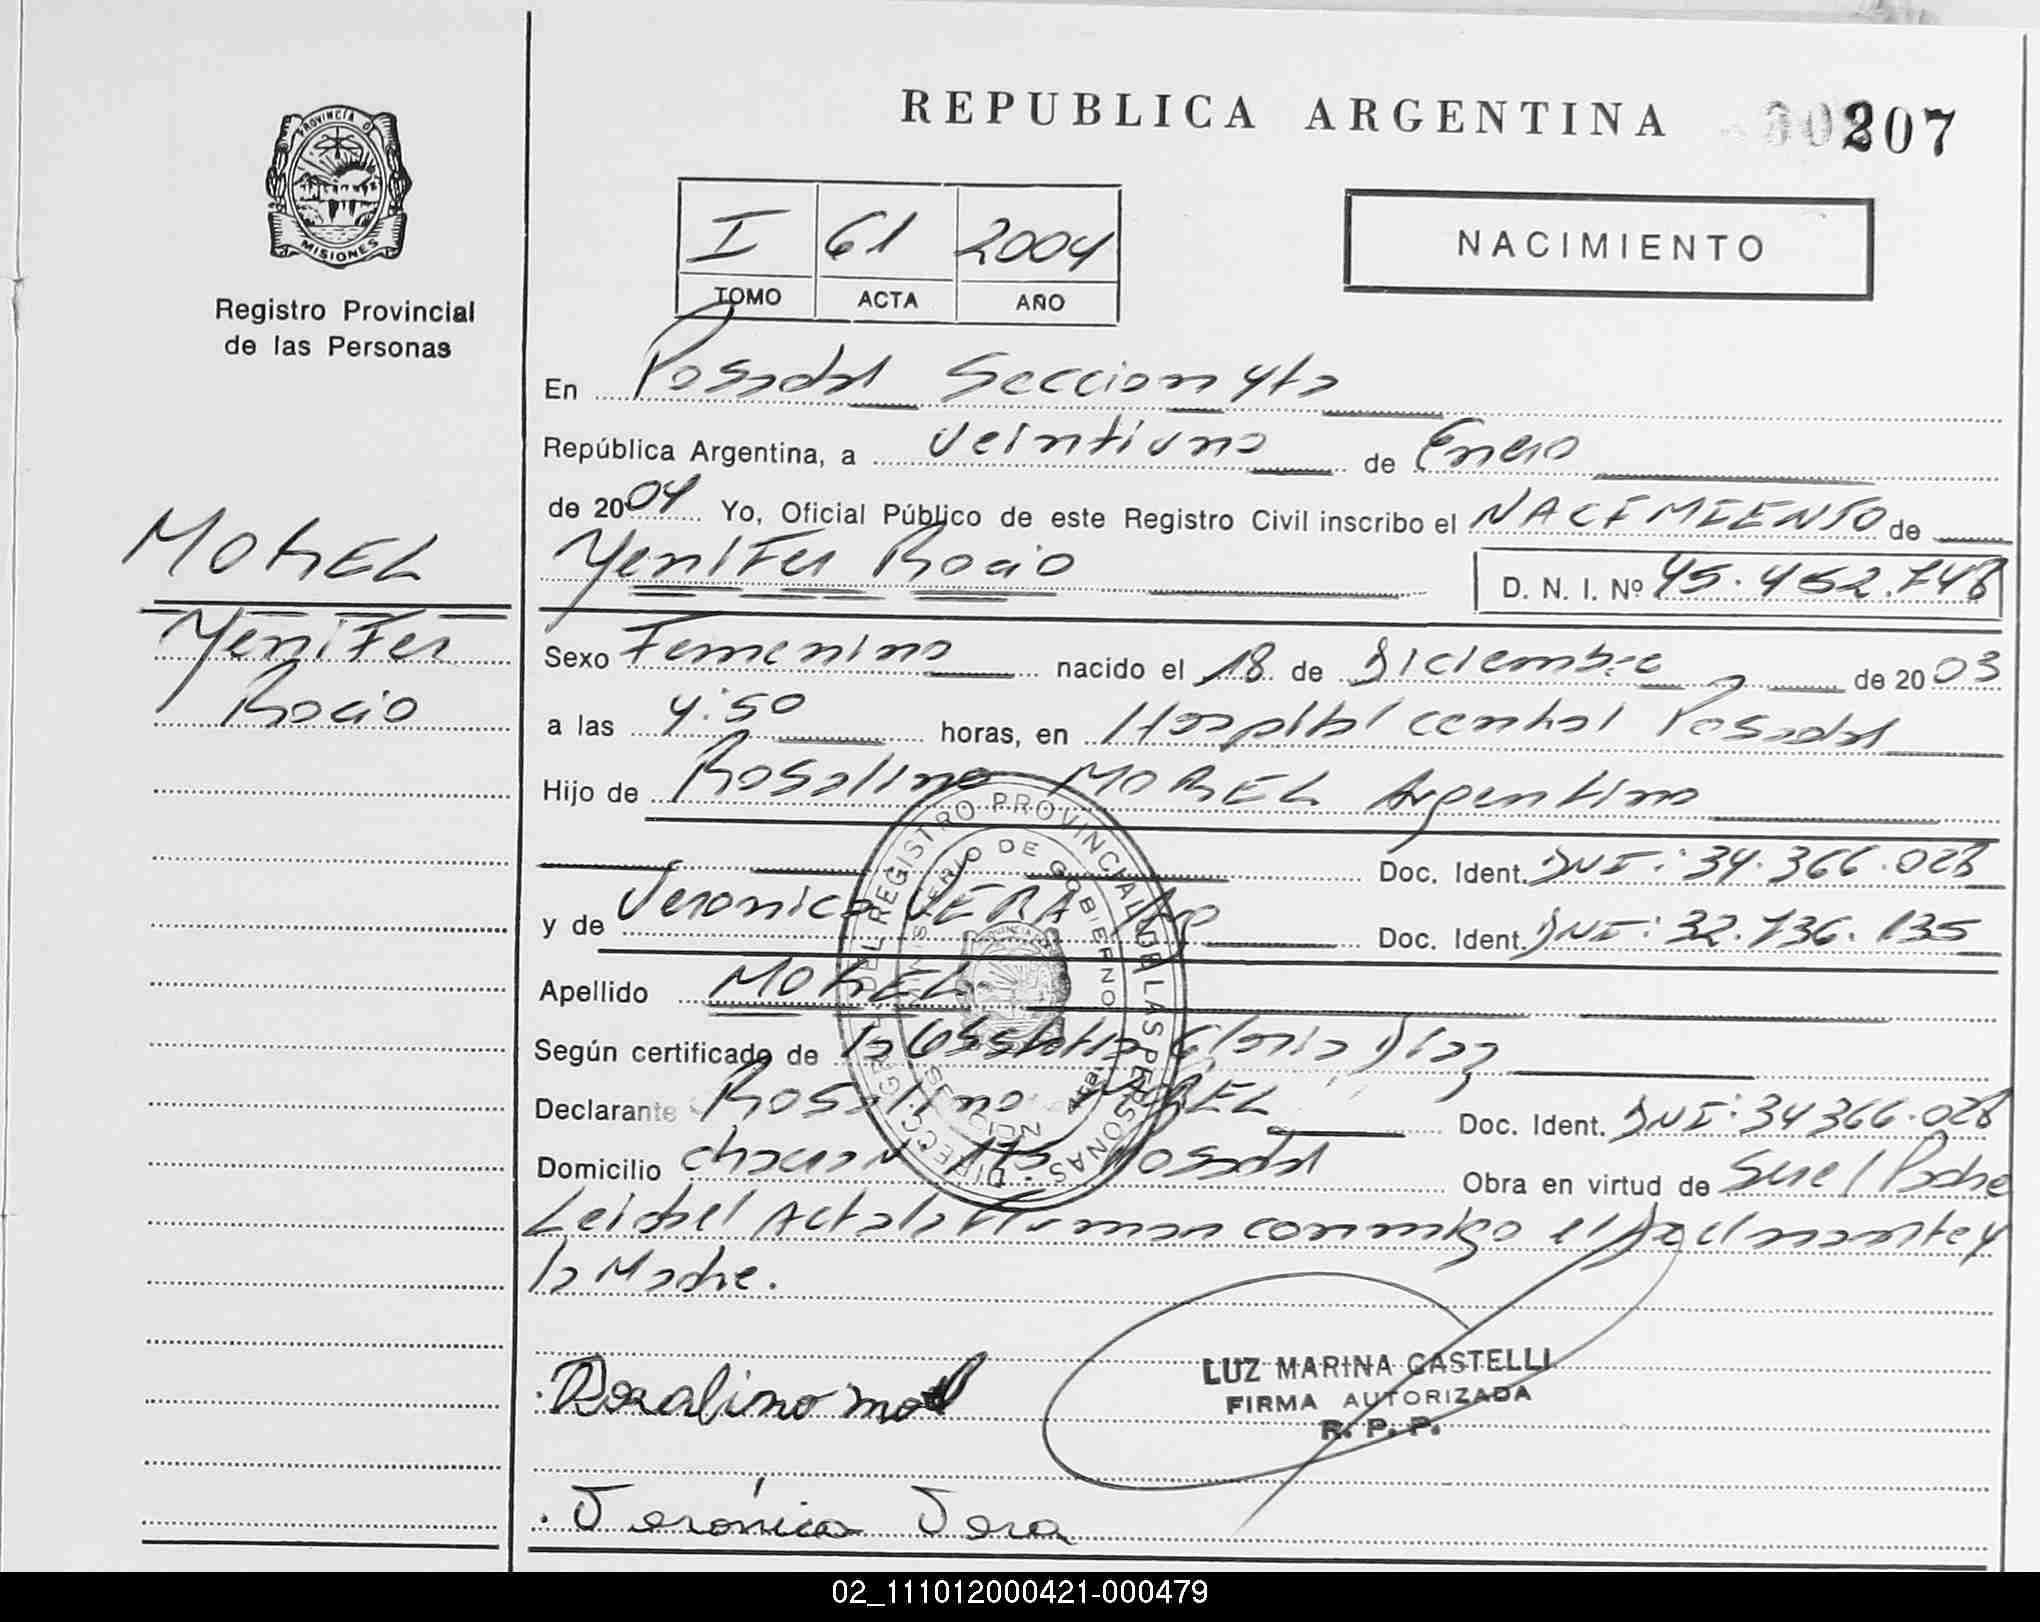 REPUBLICA ARGENTINA 00207
PROVINCIA D
MISIONES
Registro Provincial
de las Personas
I 61 2004
TOMO ACTA AÑO
NACIMIENTO
En Posadas Seccion 4ta
República Argentina, a veintiuno de Enero
de 2004 Yo, Oficial Público de este Registro Civil inscribo el NACIMIENTO de
Yenifer Rocio D. N. I. Nº 45.452.748
MOREL
Yenifer
Rocio
Sexo Femenino nacido el 18 de Diciembre de 2003
a las 4:50 horas, en Hospital central Posadas
Hijo de Rosalino MOREL Argentino
Doc. Ident. DNI: 34.366.028
y de Veronica VERA Doc. Ident. DNI: 32.736.135
Apellido MOREL
Según certificado de la Obstetra Gloria Diaz
Declarante Rosalino MOREL Doc. Ident. DNI: 34366.028
Domicilio chacra Posadas Obra en virtud de Ser el Padre
Leida el Acta la firman conmigo el declarante y
la Madre.
DIRECC. GRAL. DEL REGISTRO PROVINCIAL DE LAS PERSONAS
MINISTERIO DE GOBIERNO
LUZ MARINA CASTELLI
FIRMA AUTORIZADA
R. P. P.
Rosalino morel
Verónica Vera
02_111012000421-000479